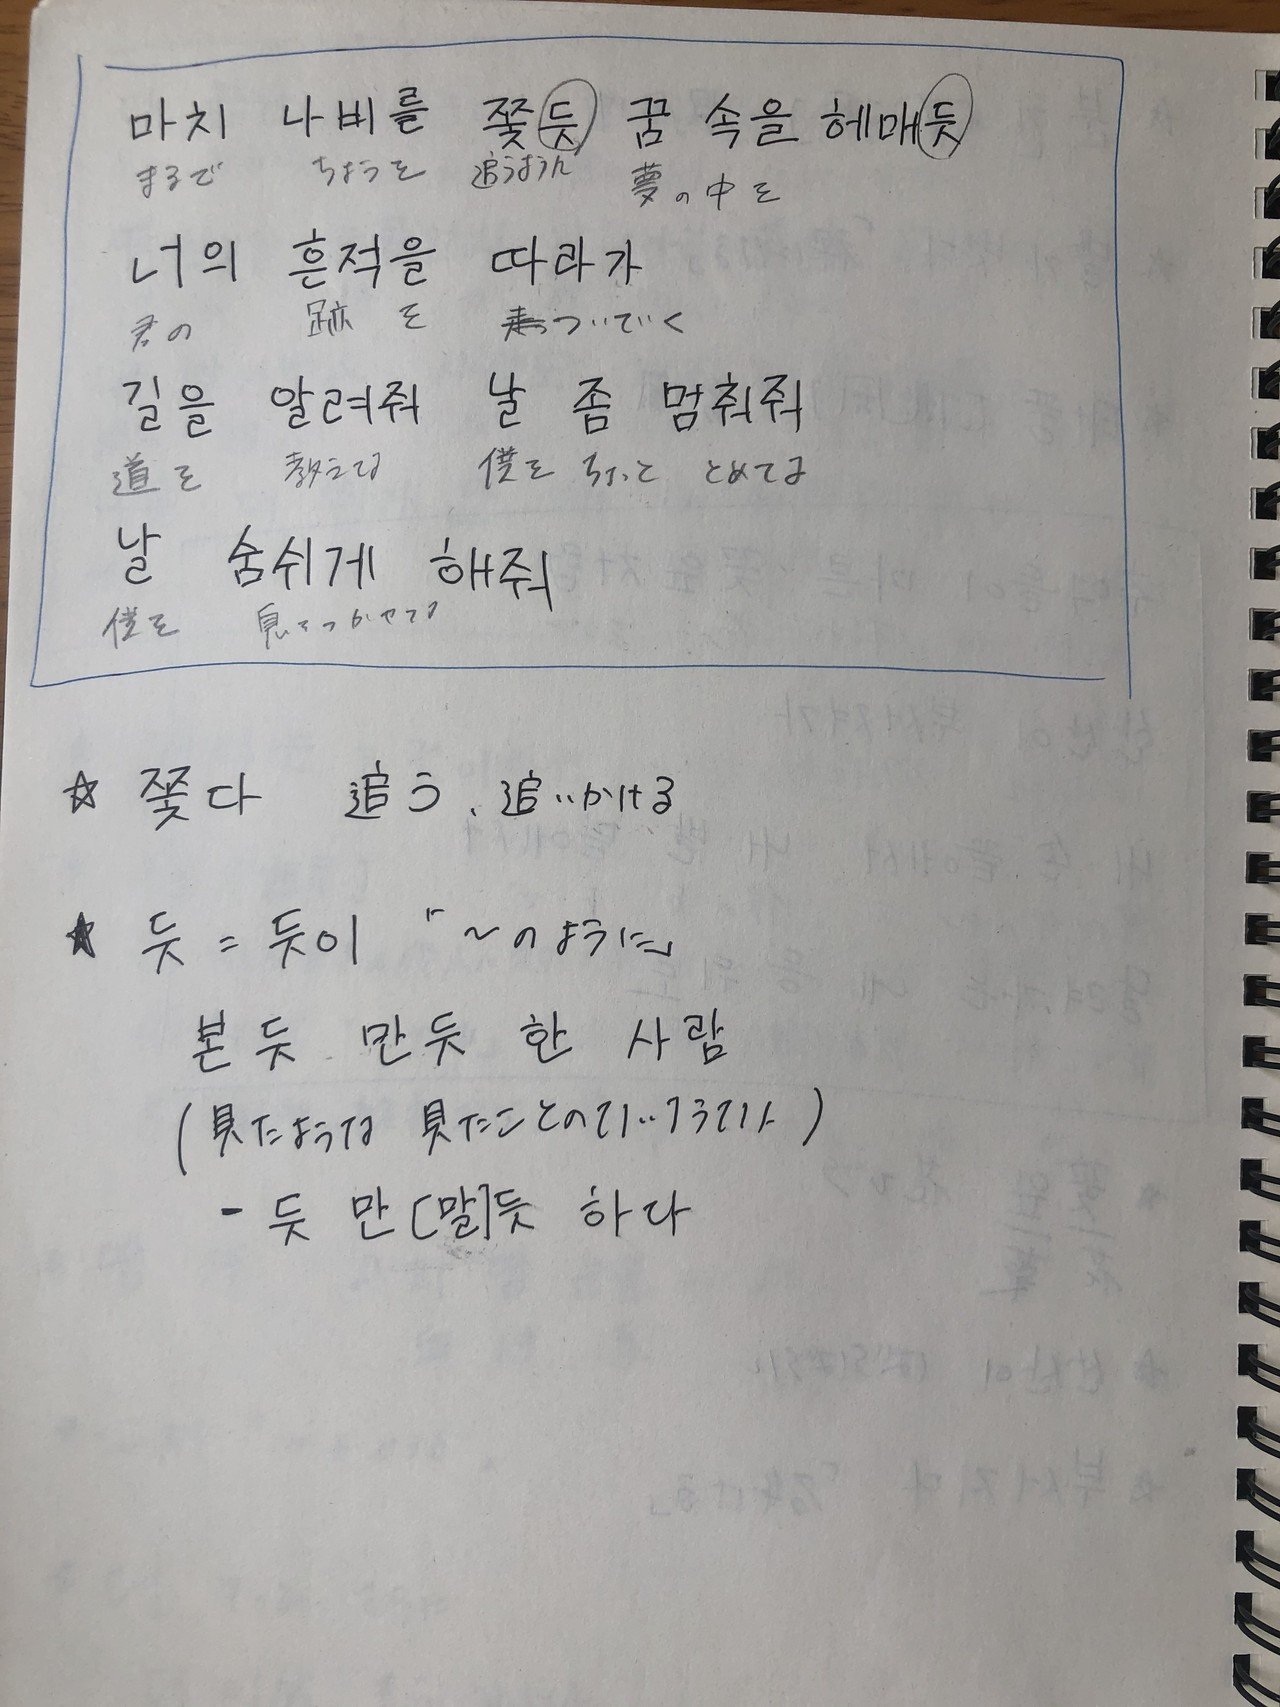 마치 나비를 쫓듯 꿈 속을 헤매듯
まるで ちょうを 追うように 夢の中を
너의 흔적을 따라가
君の 跡を ついていく
길을 알려줘 날 좀 멈춰줘
道を 教えてよ 僕を ちょっと とめてよ
날 숨쉬게 해줘
僕を 息をつかせてよ
☆ 쫓다 追う、追いかける
★ 듯 = 듯이 「~のように」
본듯 만듯 한 사람
(見たような 見たことのない
- 듯 만[말]듯 하다